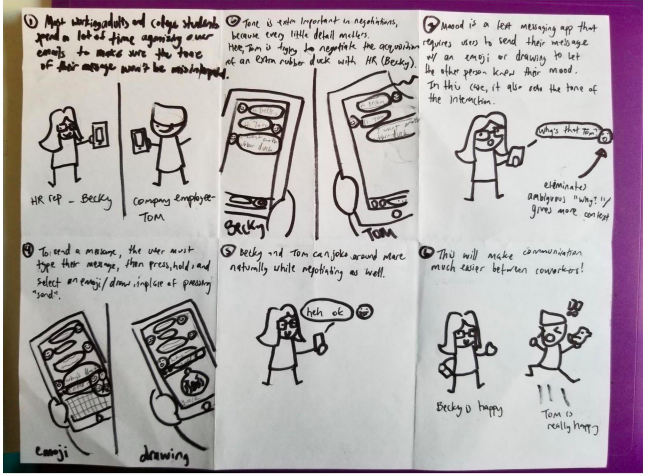 ① Most working adults and college students
spend a lot of time agonizing over
emails to make sure the tone
of their message won't be misinterpreted.
HR rep - Becky
company employee-
TOM
② Tone is extra important in negotiations,
because every little detail matters.
Here, Tom is trying to negotiate the acquisition
of an extra rubber duck with HR (Becky).
Becky
Tom
③ Maood is a text messaging app that
requires users to send their message
w/ an emoji or drawing to let
the other person know their mood.
In this case, it also sets the tone of
the interaction.
Why's that Tom?
eliminates
ambiguous "why?"/
gives more context
④ To send a message, the user must
type their message, then press, hold, and
select an emoji/draw, in place of pressing
"send".
emoji
drawing
⑤ Becky and Tom can joke around more
naturally while negotiating as well.
heh ok
⑥ This will make communication
much easier between coworkers!
Becky is happy
Tom is
really happy